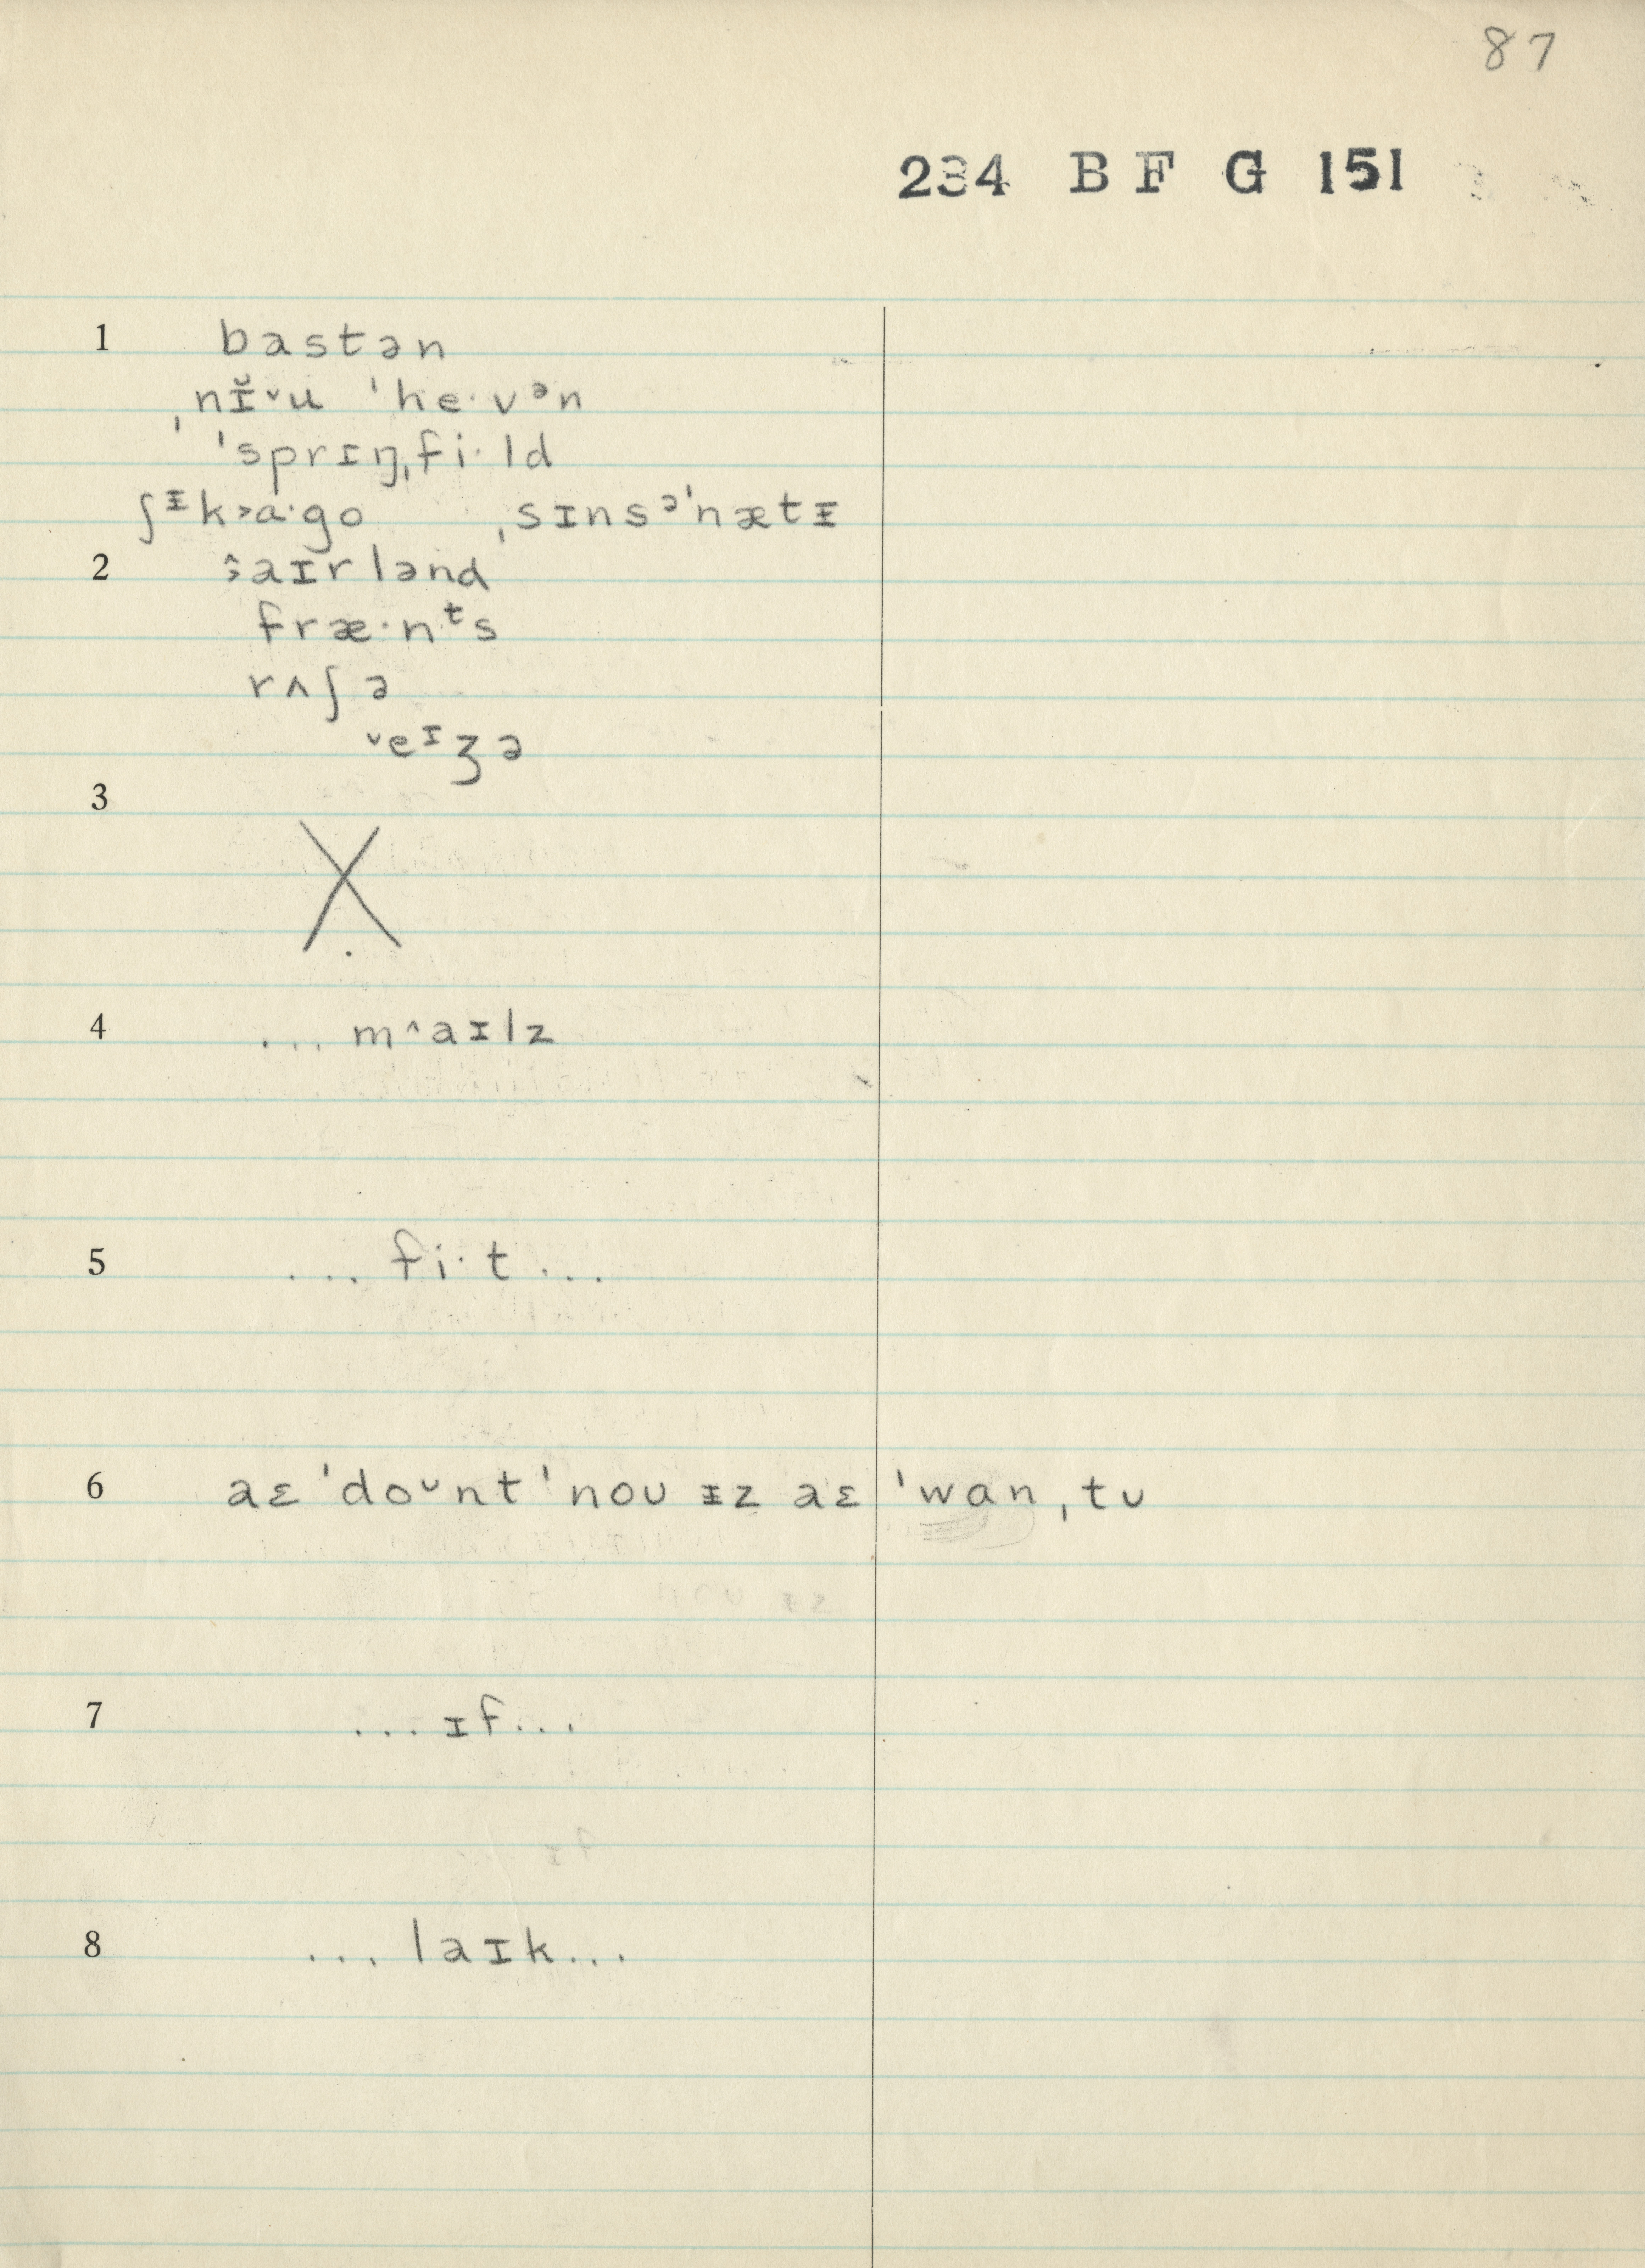 87
234 B F G 151
1 bastən
ˌnɪ̵̆ˇu ˈheˑvᵊn
ˈsprɪŋˌfiˑld
ʃᵻk˃aˑgo ˌsɪnsᵊˈnætᵻ
2 aɪrlənd
fræˑnᵗs
rʌʃə
ˇeᶦʒə
3
X
4 ... m^aɪlz
5 ... fiˑt ...
6 aɛ ˈdoᵕnt ˈnoʊ ᵻz aɛ ˈwanˌtʊ
7 ...ɪf...
8 ... laɪk...